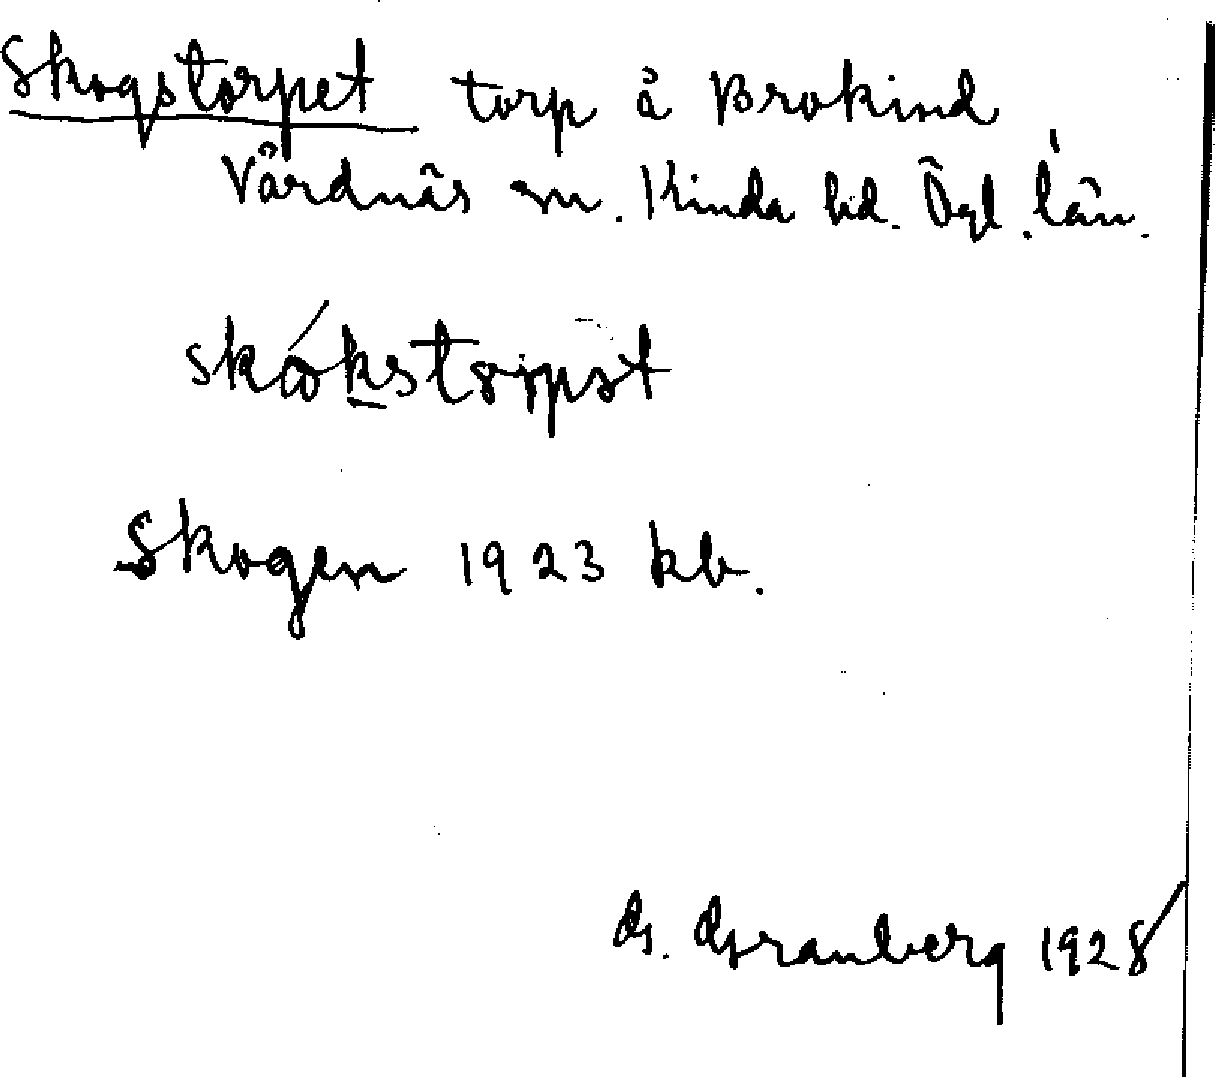 Skogstorpet torp å Brokind
Vårdnäs sn. Kinda hd. Ögl. län.
Skogen 1923 kb.
G. Granberg 1928